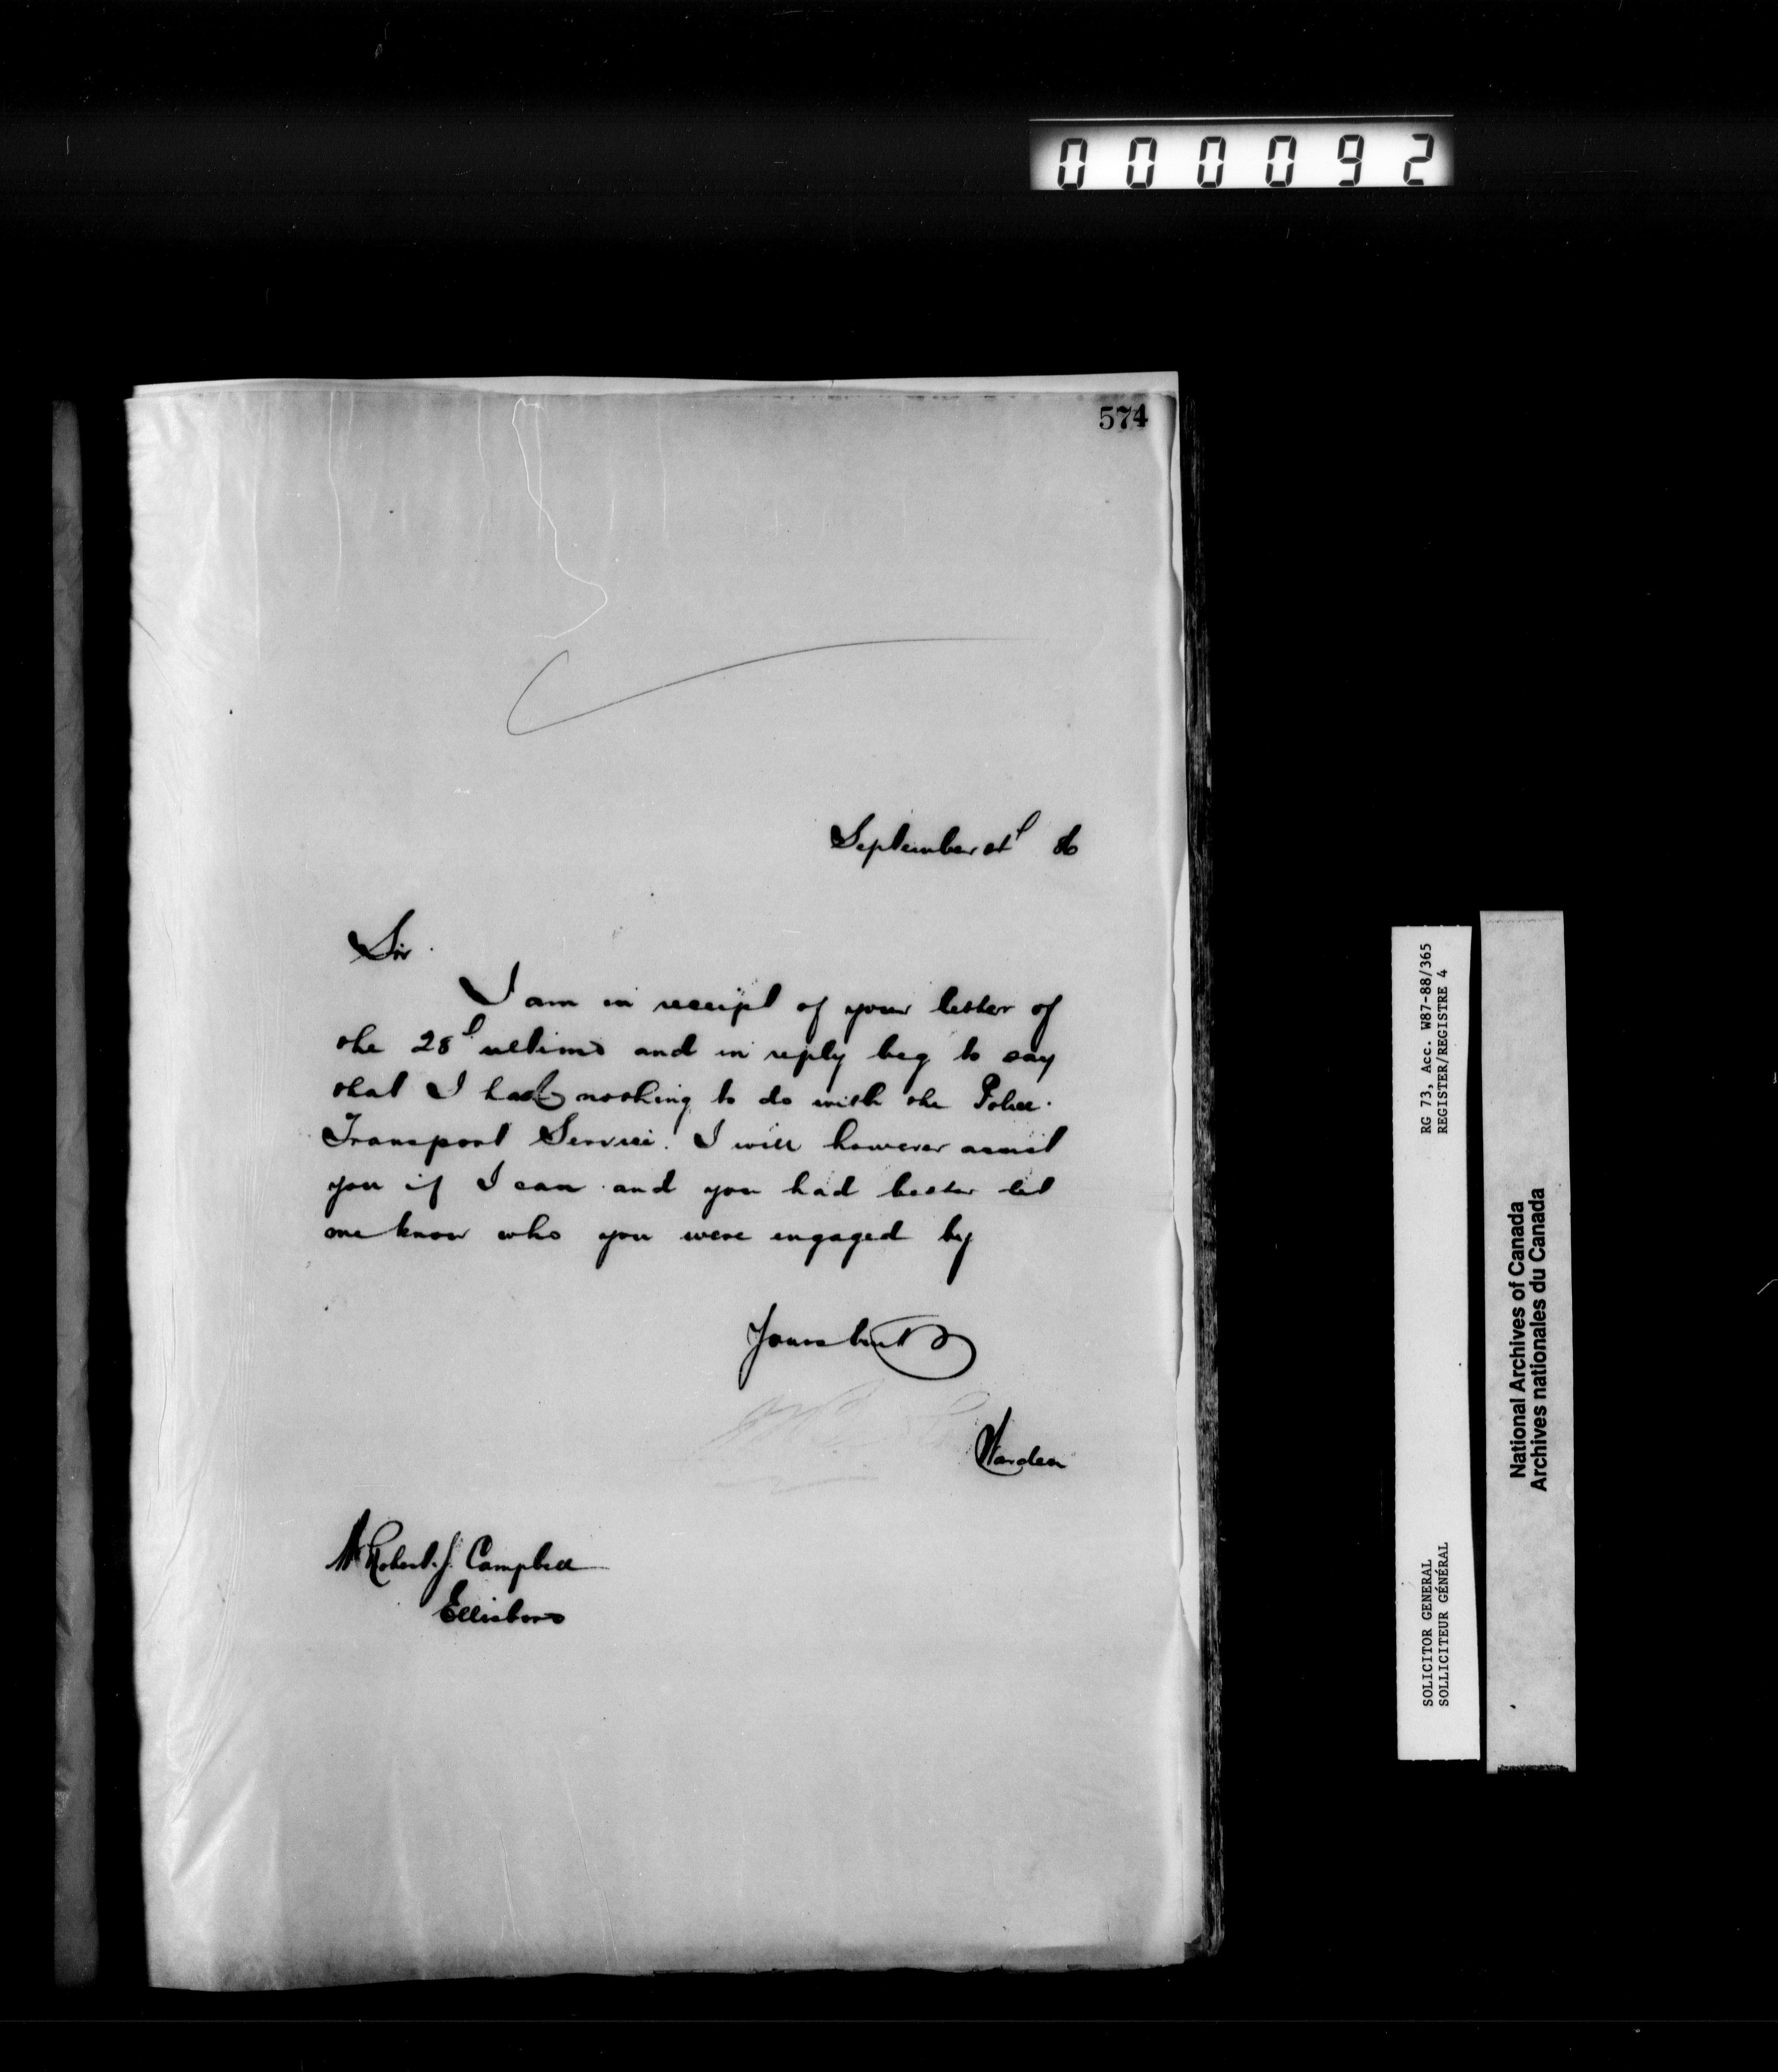 000092
574
September 86
Sir.
I am in receipt of your letter of
the 28t ultimo and in reply beg to say
that I had nothing to do with the Police
Transport Service. I will however assist
you if I can and you had better let
me know who you were engaged by
Yours truly
Warden
Mr Robert. J. Campbell
Ellisboro
RG 73, Acc. W87-88/365
REGISTER/REGISTRE 4
SOLICITOR GENERAL
SOLLICITEUR GÉNÉRAL
National Archives of Canada
Archives nationales du Canada